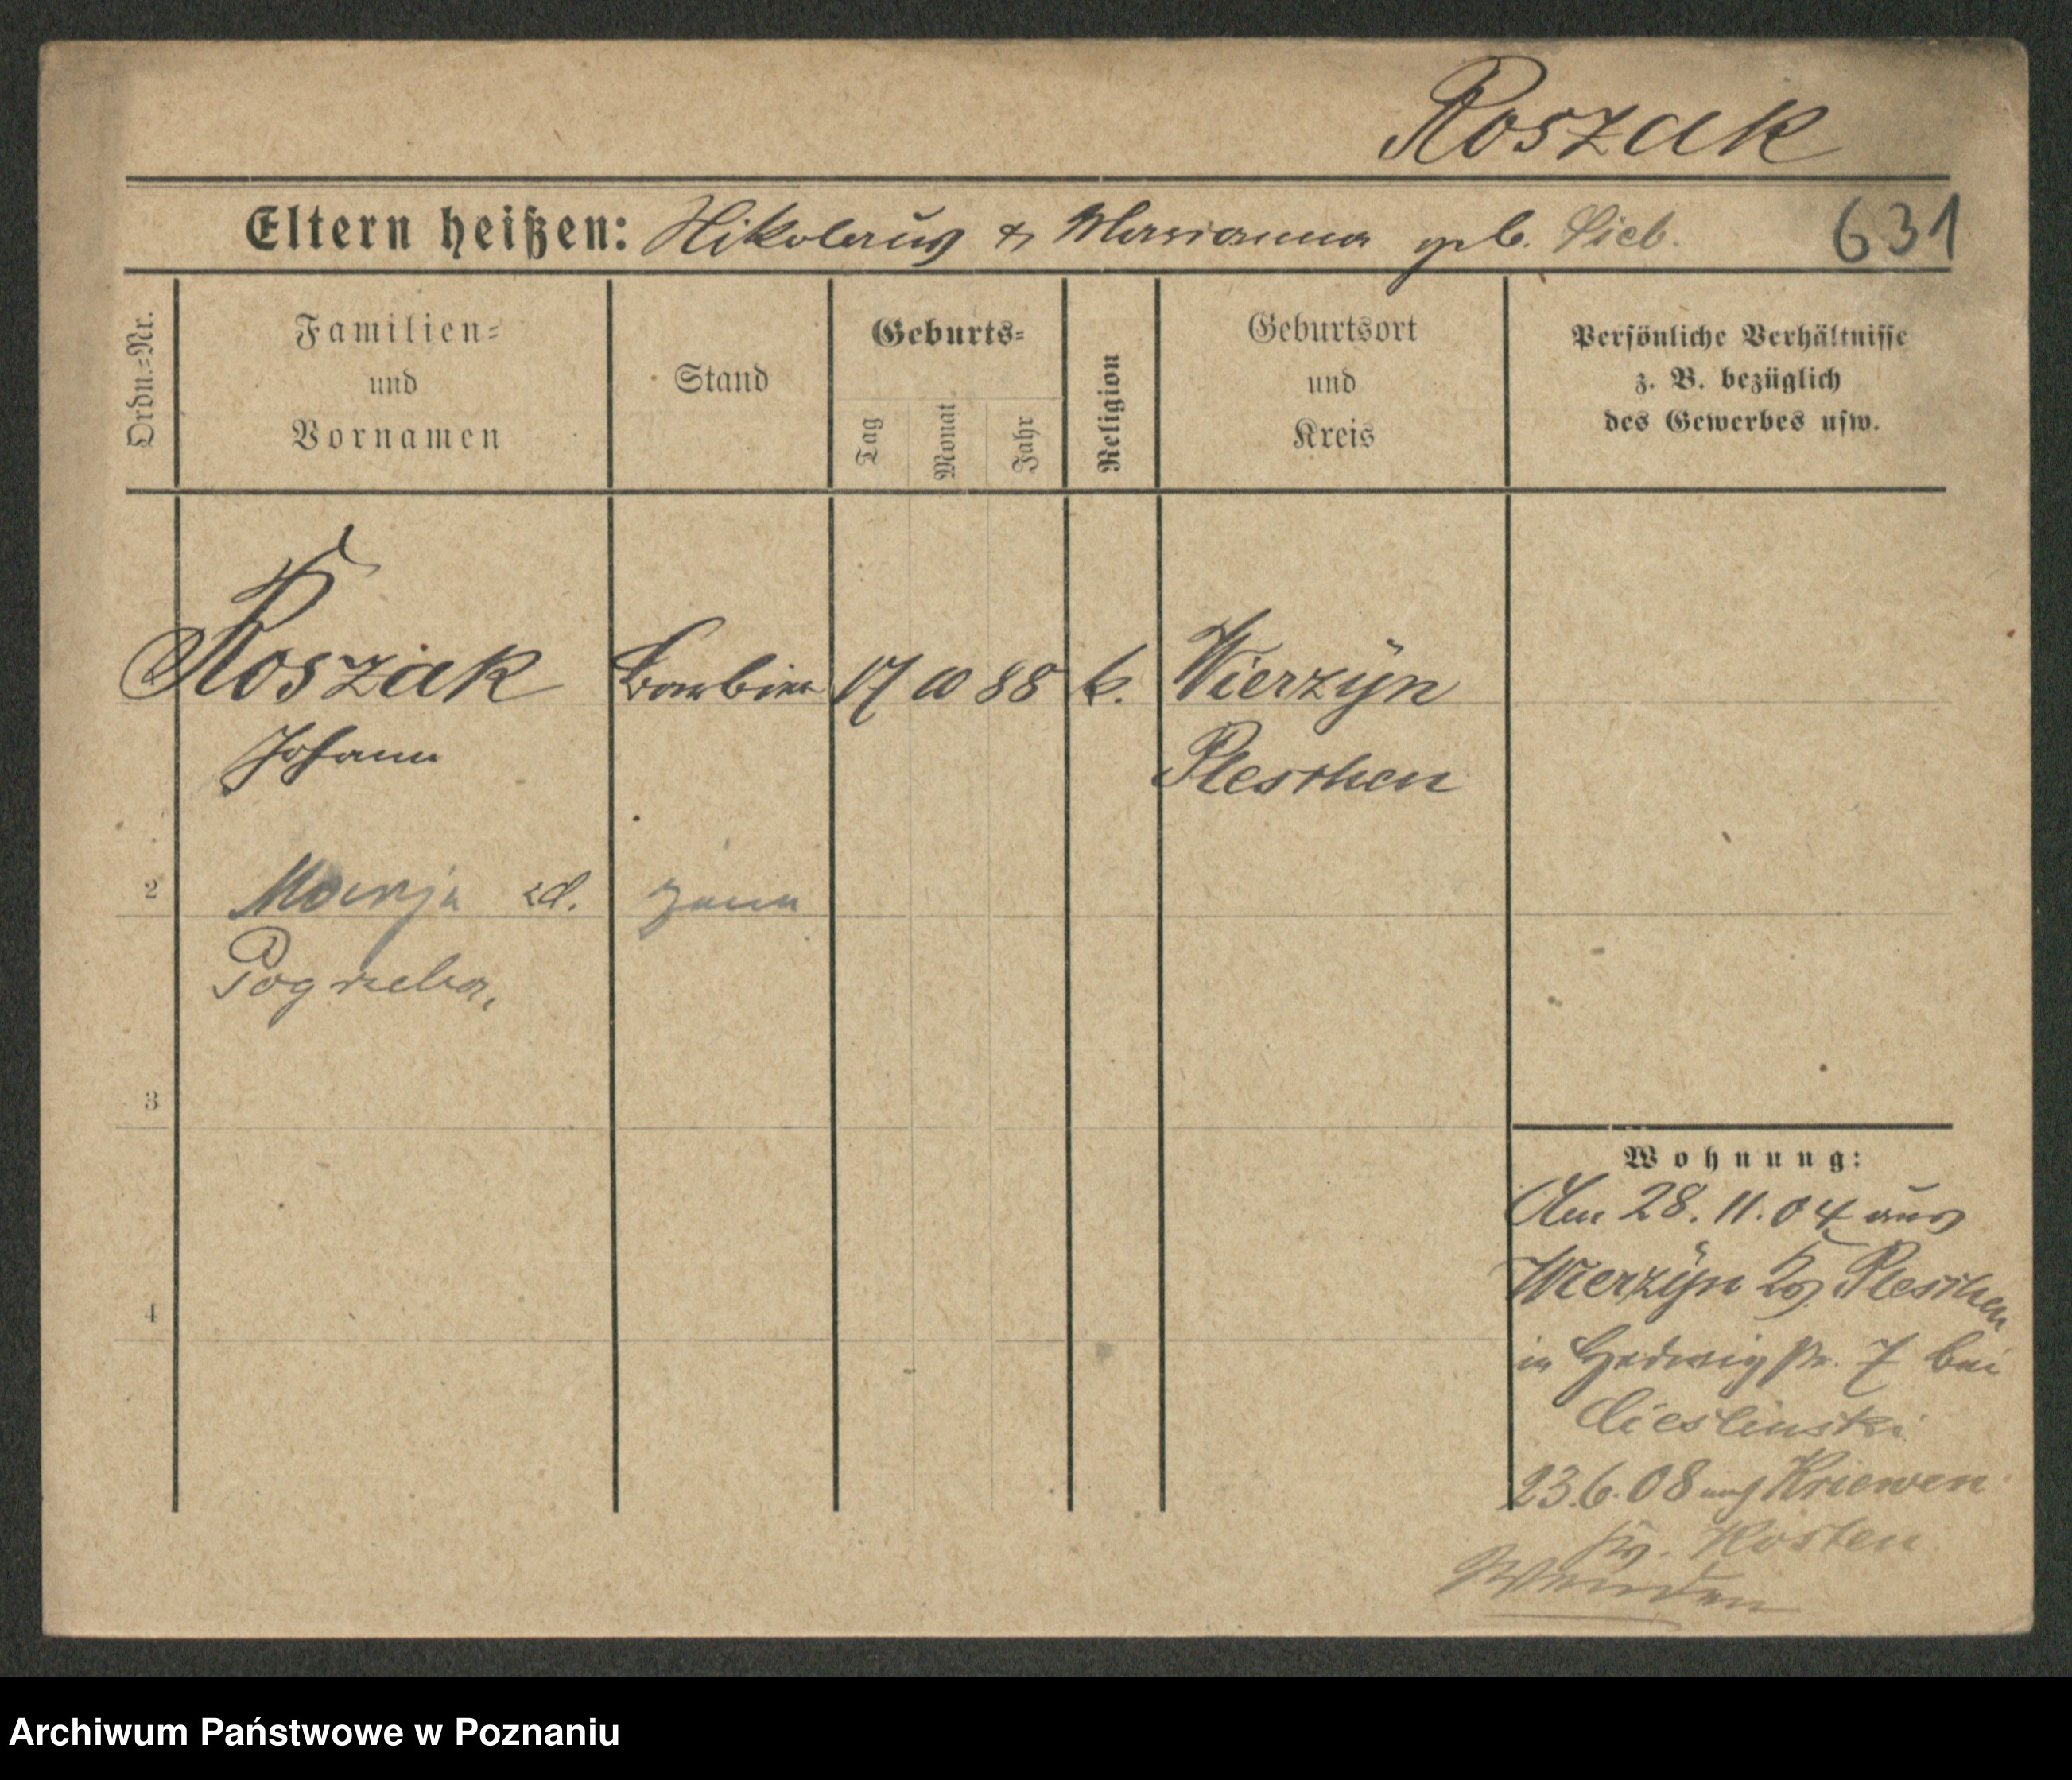 Roszak
Eltern heißen: Nikolaus & Marianna geb. Sieb. 631
Ordn.-Nr.
Familien- und Vornamen
Stand
Geburts-
Tag Monat Jahr
Religion
Geburtsort und Kreis
Persönliche Verhältnisse
z. B. bezüglich
des Gewerbes usw.
Roszak Barbier 17 10 88 k. Wierzÿn
Johann Pleschen
2 Marja żona
Pogrzeba,
3
4
Wohnung:
Am 28. 11. 04 aus
Wierzÿn Kr. Pleschen
in Hedwigstr. 7 bei
Cieslinski
23.6.08 nach Kriewen
Kr. Kosten
Wenden
Archiwum Państwowe w Poznaniu